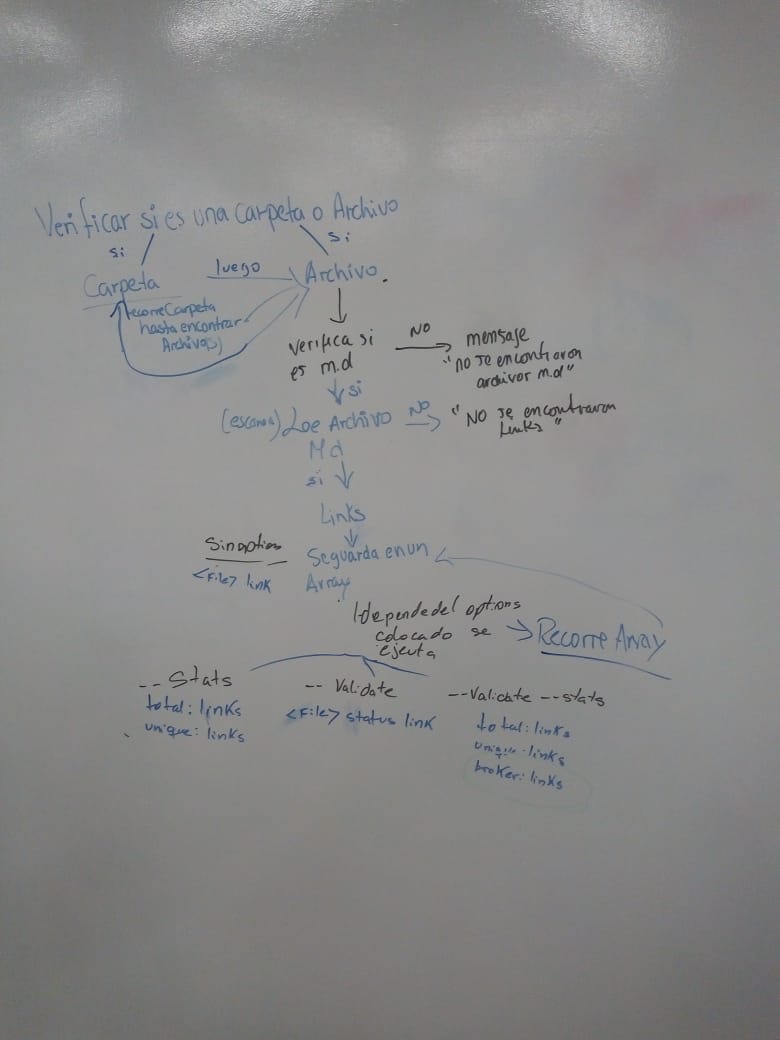 Verificar si es una carpeta o Archivo
si
si
Carpeta
luego
Archivo.
recorre Carpeta
hasta encontrar
Archivo(s)
verifica si
es m.d
NO
mensaje
"no se encontraron
archivos m.d"
si
(escanea) Lee Archivo
Md
NO
"NO se encontraron
Links"
si
Links
Sin option
<File> link
Se guarda en un
Array
depende del options
colocado se
ejecuta
Recorre Array
-- Stats
total: links
unique: links
-- Validate
<File> status link
--Validate --stats
total: links
unique: links
broker: links